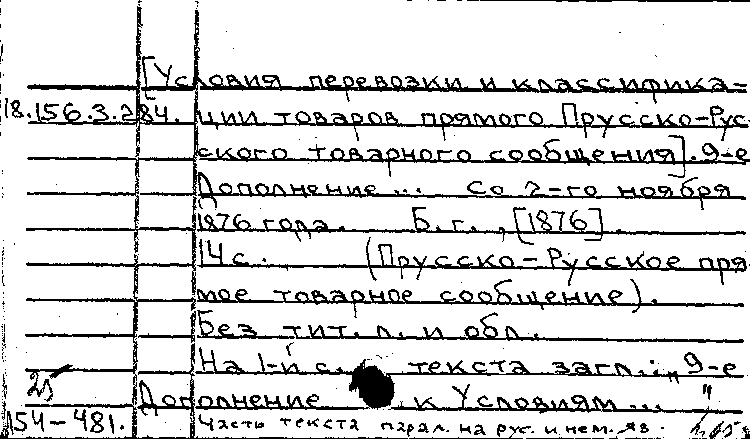 [Условия перевозки и классифика=
18.156.3.284. ции товаров прямого Прусско-Рус-
ского товарного сообщения]. 9-е
Дополнение... Со 2-го ноября
1876 года. Б.г., [1876].
14 с. (Прусско-Русское пря-
мое товарное сообщение).
Без тит. л. и обл.
На 1-й с. текста загл.: „9-е
Дополнение к Условиям..."
154-481. Часть текста парал. на рус. и нем. яз.